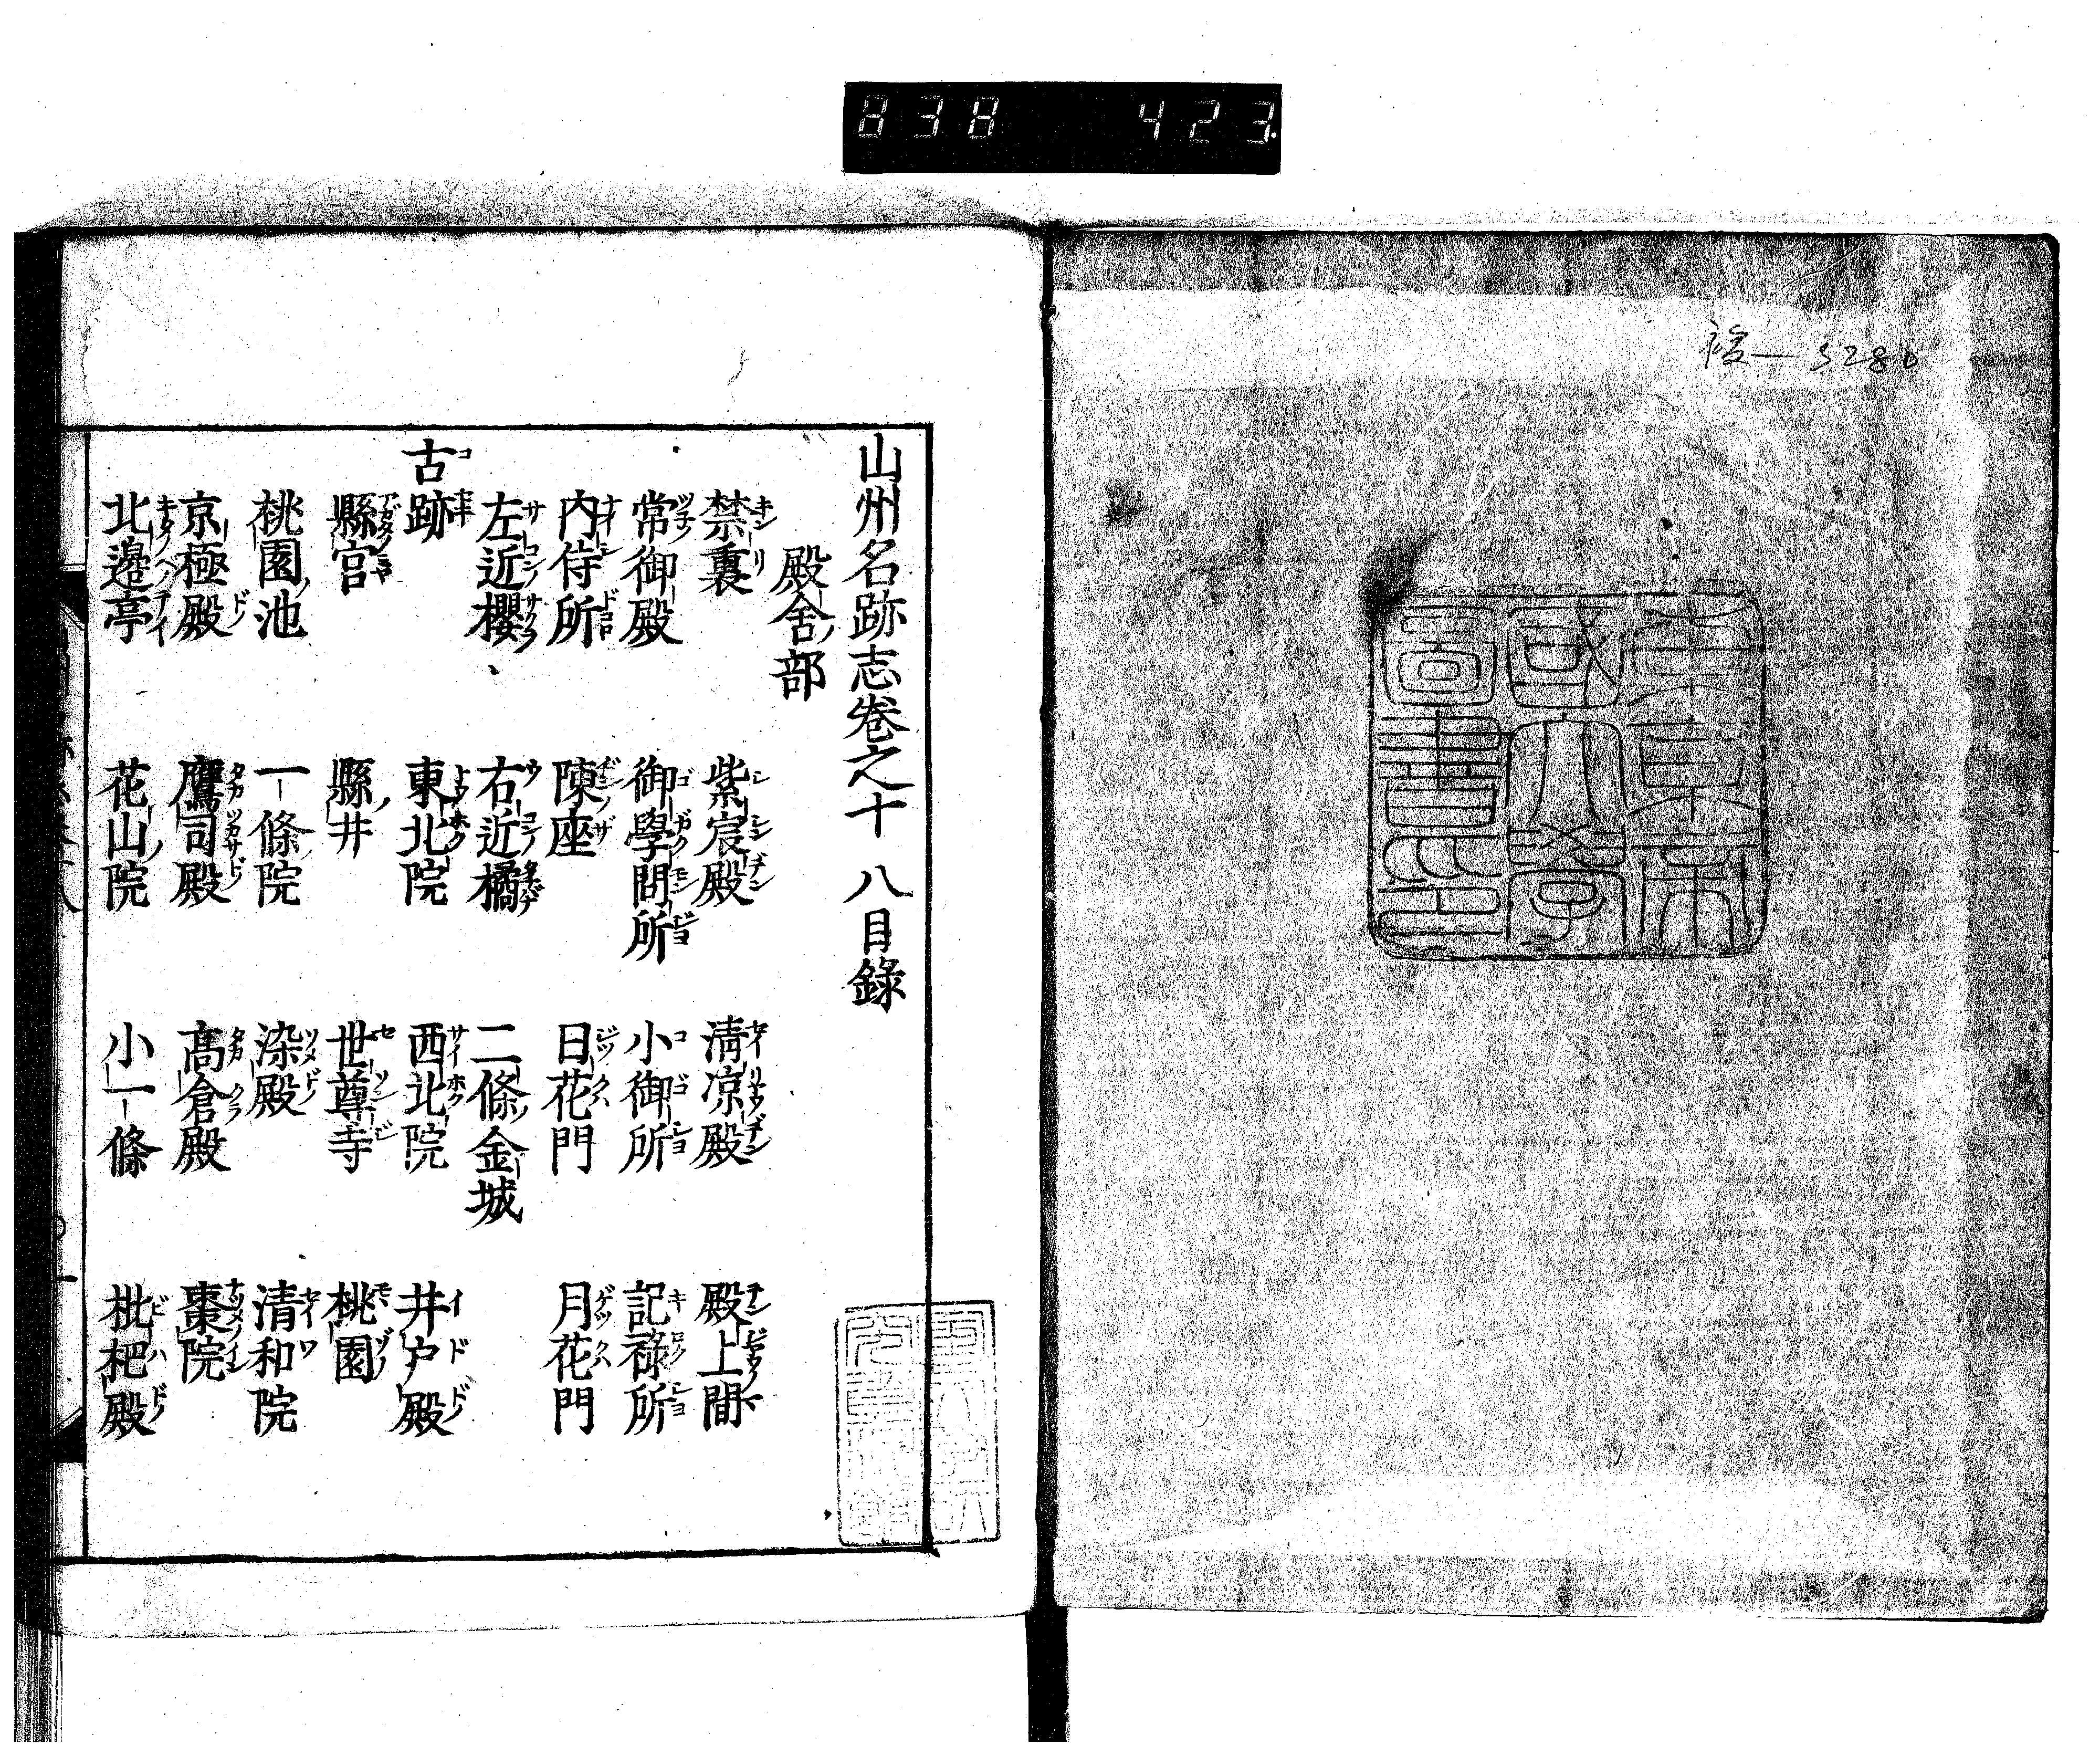 838 423
複一3280
東京帝
國大學
圖書印
山州名跡志卷之十八目錄
殿舍ノ部
禁裏 紫宸殿 淸凉殿 殿上間
常御殿 御學問所 小御所 記祿所
內侍所 陳座 日花門 月花門
左近櫻 右近橘 二條金城
古跡 東北院 西北院 井戶殿
縣宮 縣ノ井 世尊寺 桃園
桃園ノ池 一條院 染殿 清和院
京極殿 鷹司殿 髙倉殿 棗院
北邊亭 花山ノ院 小一條 枇杷殿